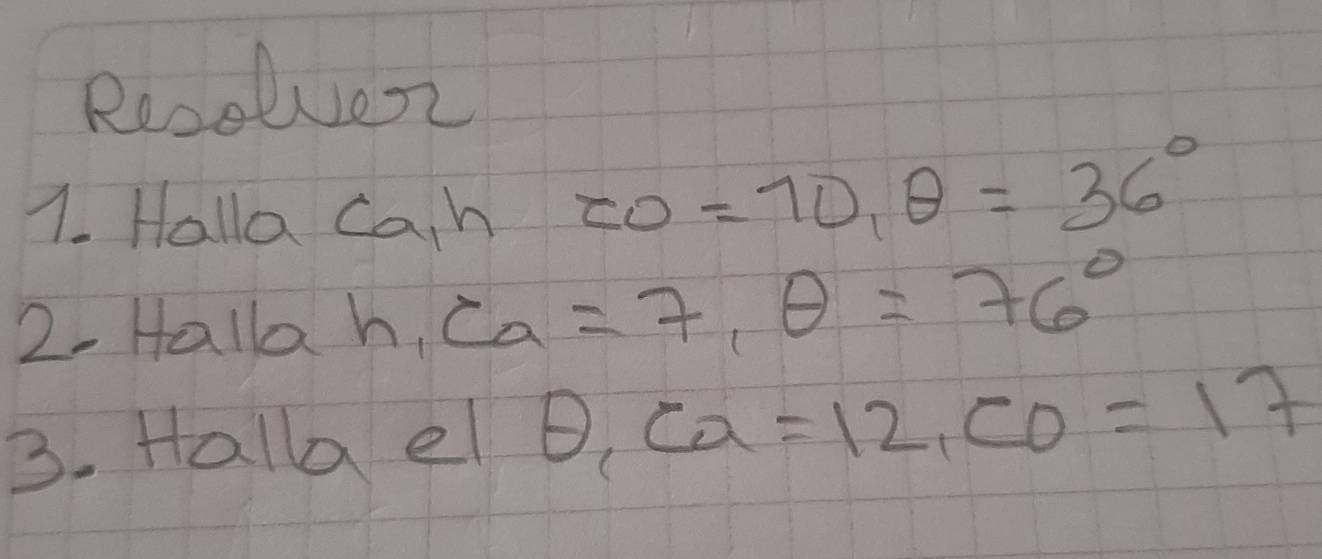 Resolver
1. Halla ca, h co = 10, θ = 36°
2. Halla h, ca = 7, θ = 76°
3. Halla el θ, ca = 12, co = 17